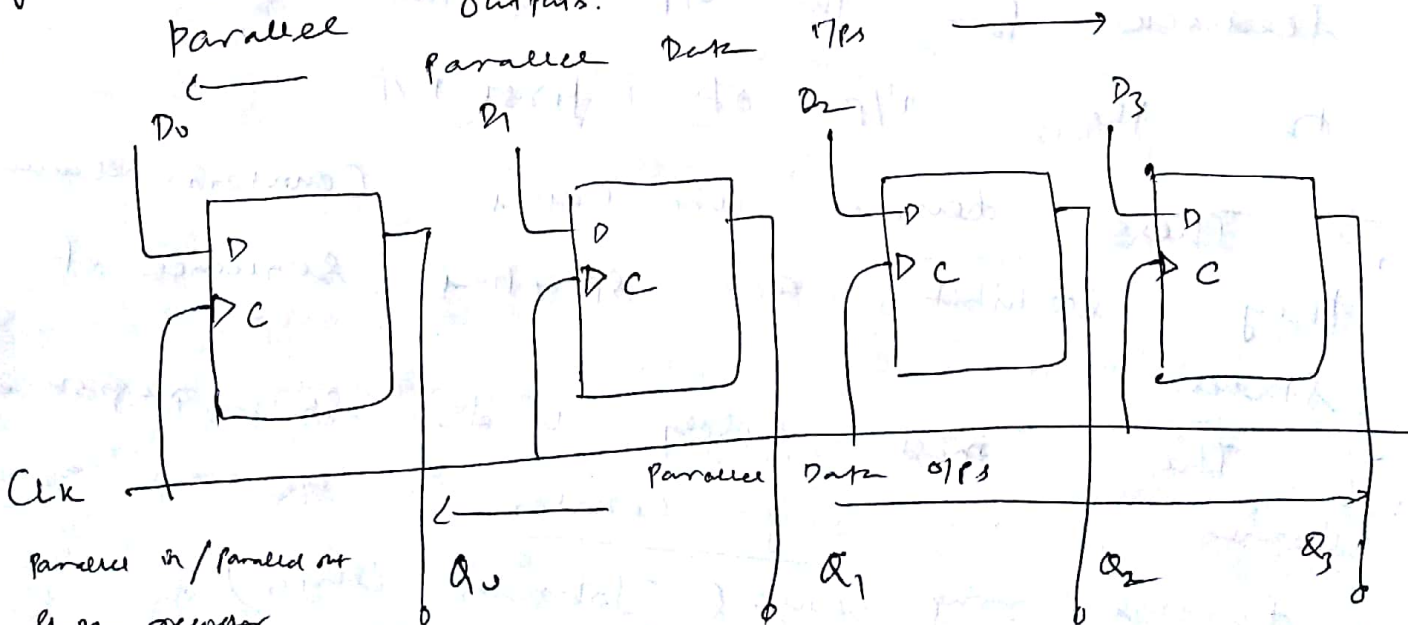 outputs.
Parallel
Parallel Data I/Ps
D0 D1 D2 D3
D D D D
C C C C
Clk
Parallel Data O/Ps
Parallel in / Parallel out
Q0 Q1 Q2 Q3